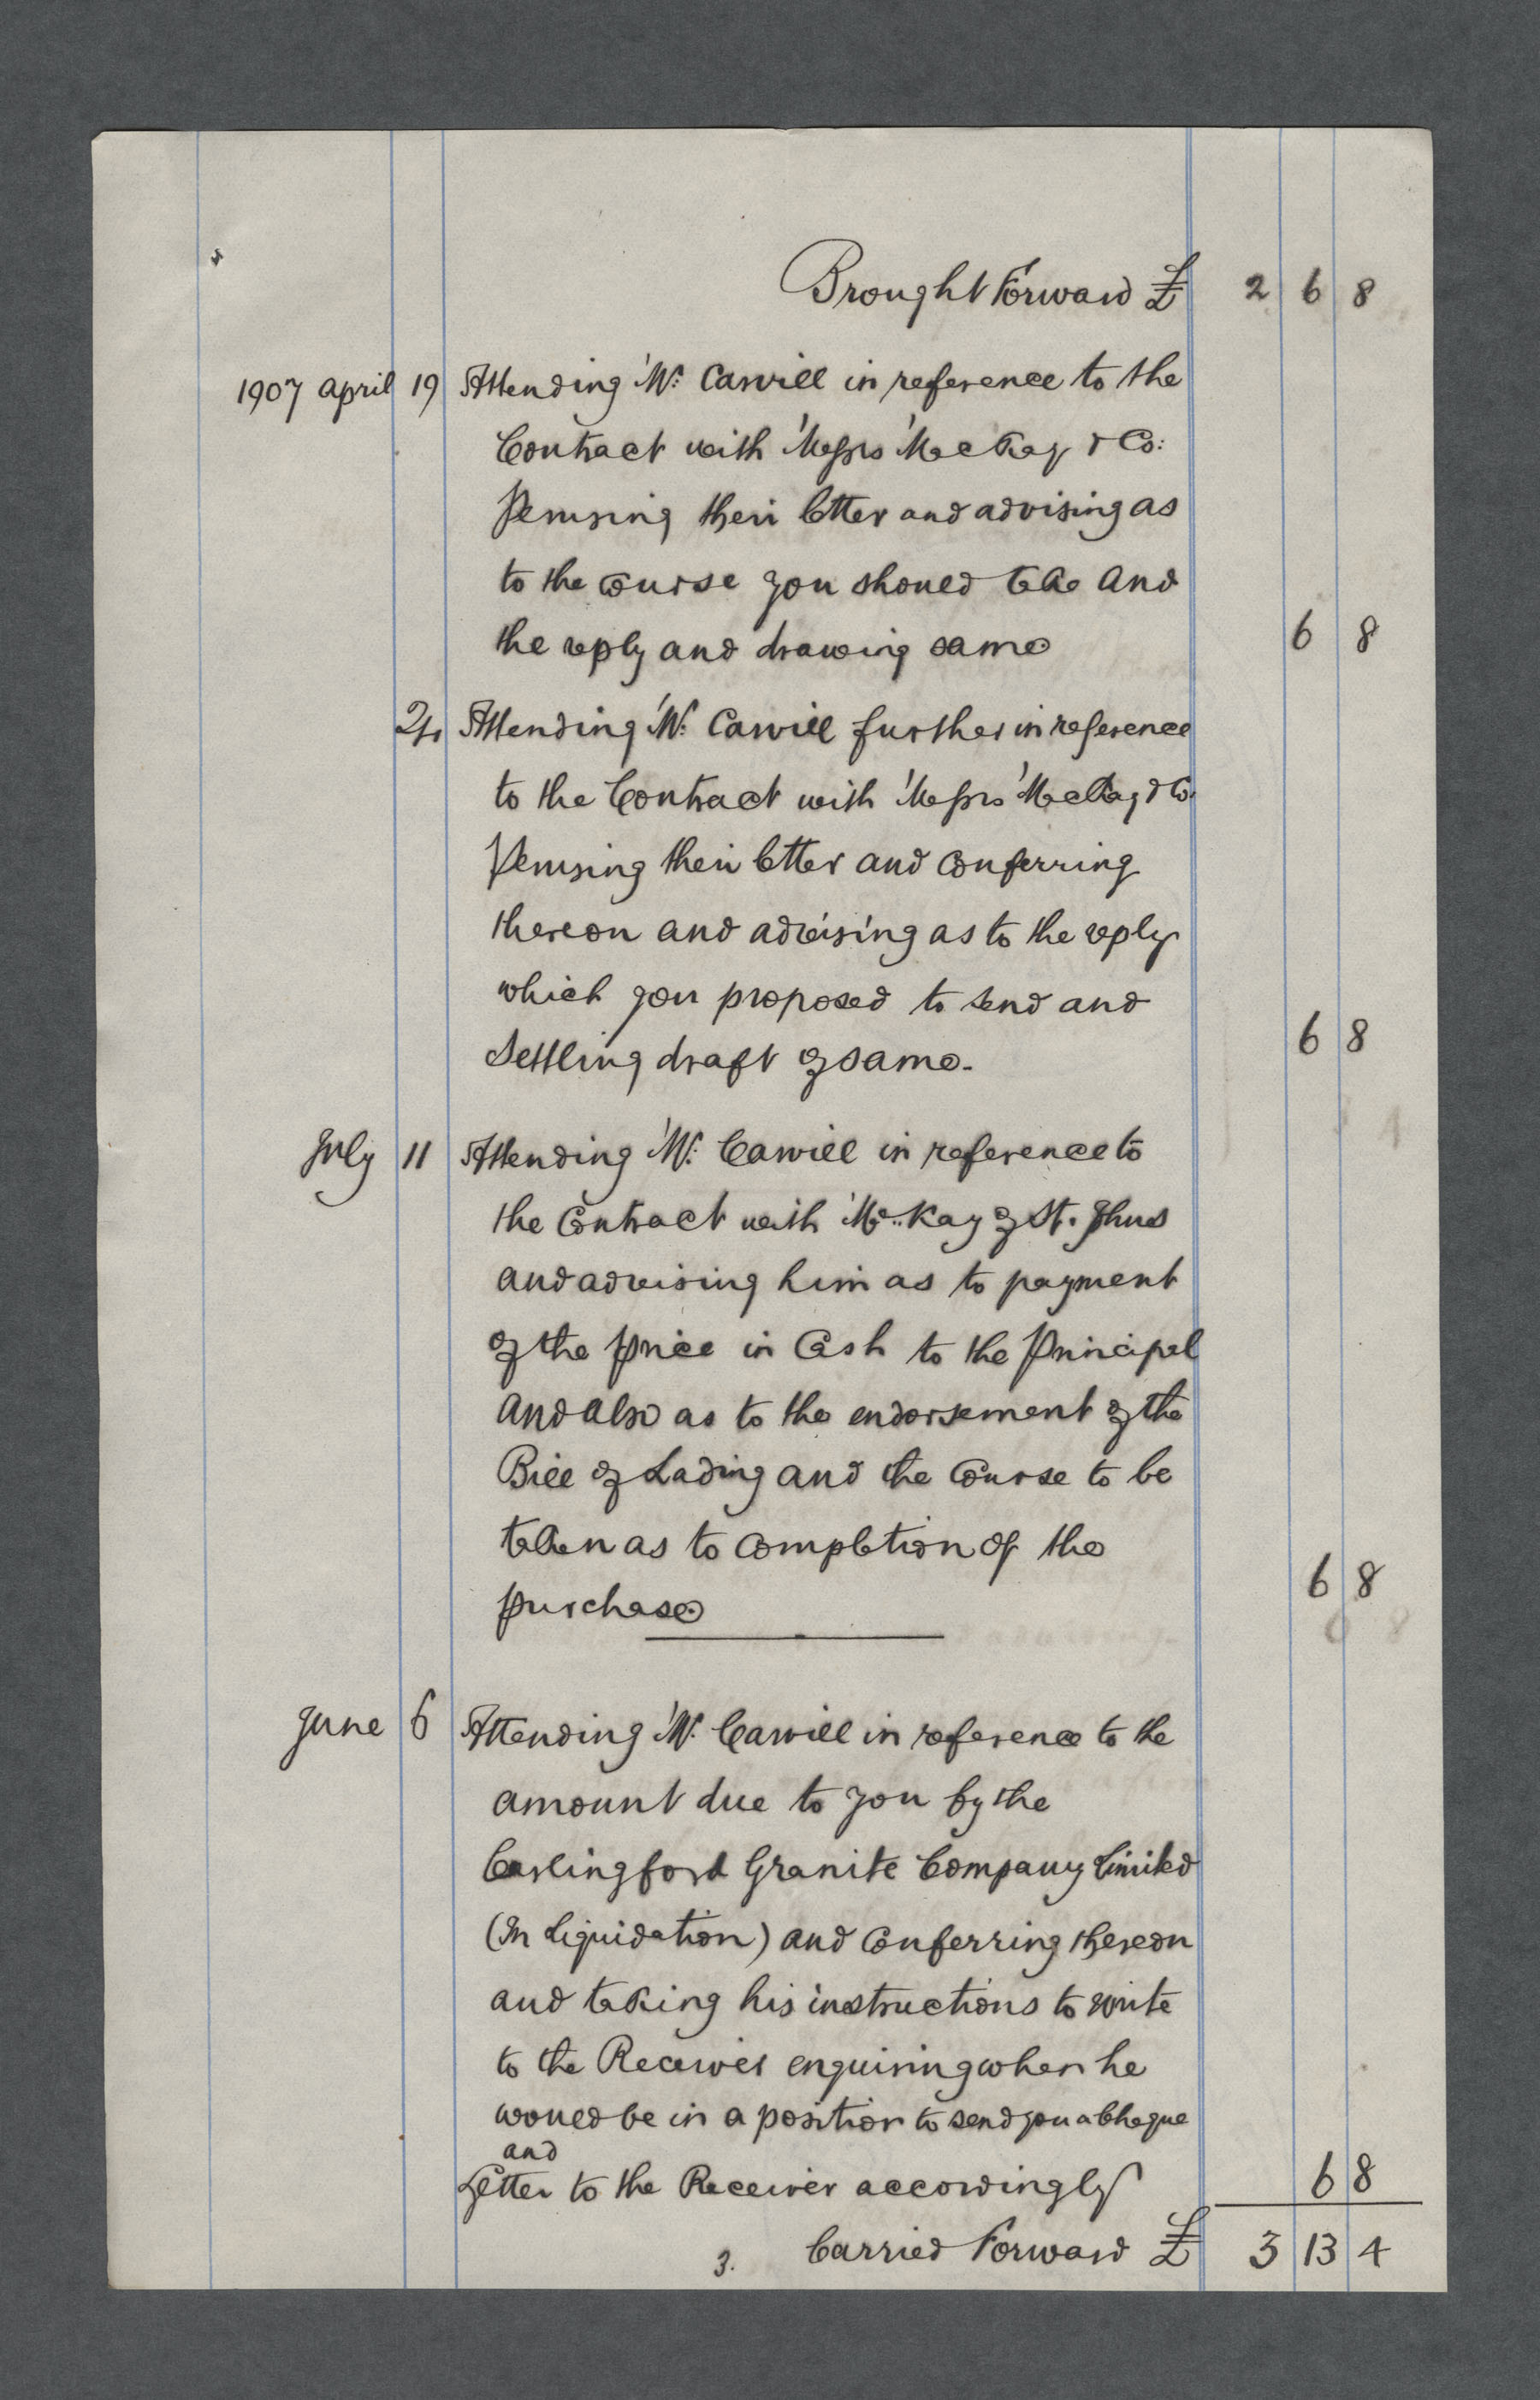 Brought Forward £ 2 6 8
1907 April 19 Attending Mr. Carvill in reference to the
Contract with Messrs MacKay & Co:
Perusing their letter and advising as
to the course you should take and
the reply and drawing same 6 8
Attending Mr. Carvill further in reference
to the Contract with Messrs MacKay & Co.
Perusing their letter and conferring
thereon and advising as to the reply
which you proposed to send and
Settling draft of same. 6 8
July 11 Attending Mr. Carvill in reference to
the Contract with McKay of St. Johns
and advising him as to payment
of the price in Cash to the Principal
and also as to the endorsement of the
Bill of Lading and the Course to be
taken as to completion of the
purchase 6 8
June 6 Attending Mr. Carvill in reference to the
amount due to you by the
Carlingford Granite Company Limited
(In Liquidation) and conferring thereon
and taking his instructions to write
to the Receiver enquiring when he
would be in a position to send you a Cheque
and
Letter to the Receiver accordingly 6 8
3. Carried Forward £ 3 13 4